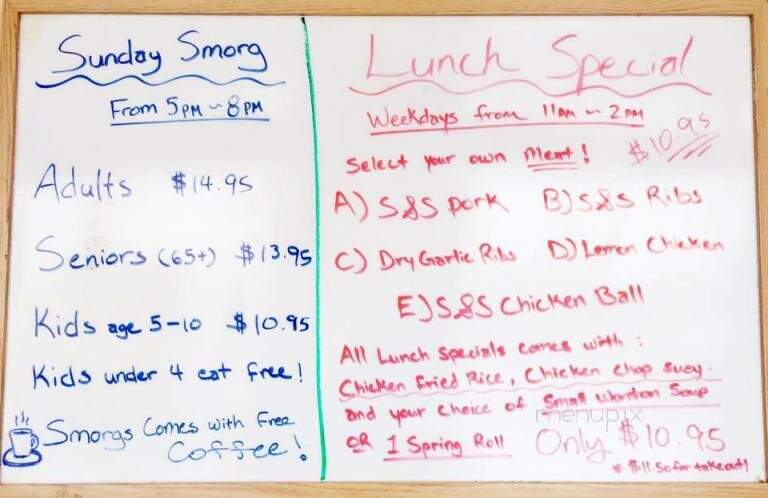 Sunday Smorg
From 5PM ~ 8PM
Adults $14.95
Seniors (65+) $13.95
Kids age 5-10 $10.95
Kids under 4 eat free!
Smorgs Comes with Free
Coffee!
Lunch Special
Weekdays from 11AM ~ 2PM
$10.95
Select your own Meat!
A) S&S Pork B) S&S Ribs
C) Dry Garlic Ribs D) Lemon Chicken
E) S&S Chicken Ball
All Lunch Specials comes with:
Chicken Fried Rice, Chicken Chop Suey.
and your choice of Small Wonton Soup
OR 1 Spring Roll Only $10.95
* $11.50 for takeout!
menupix